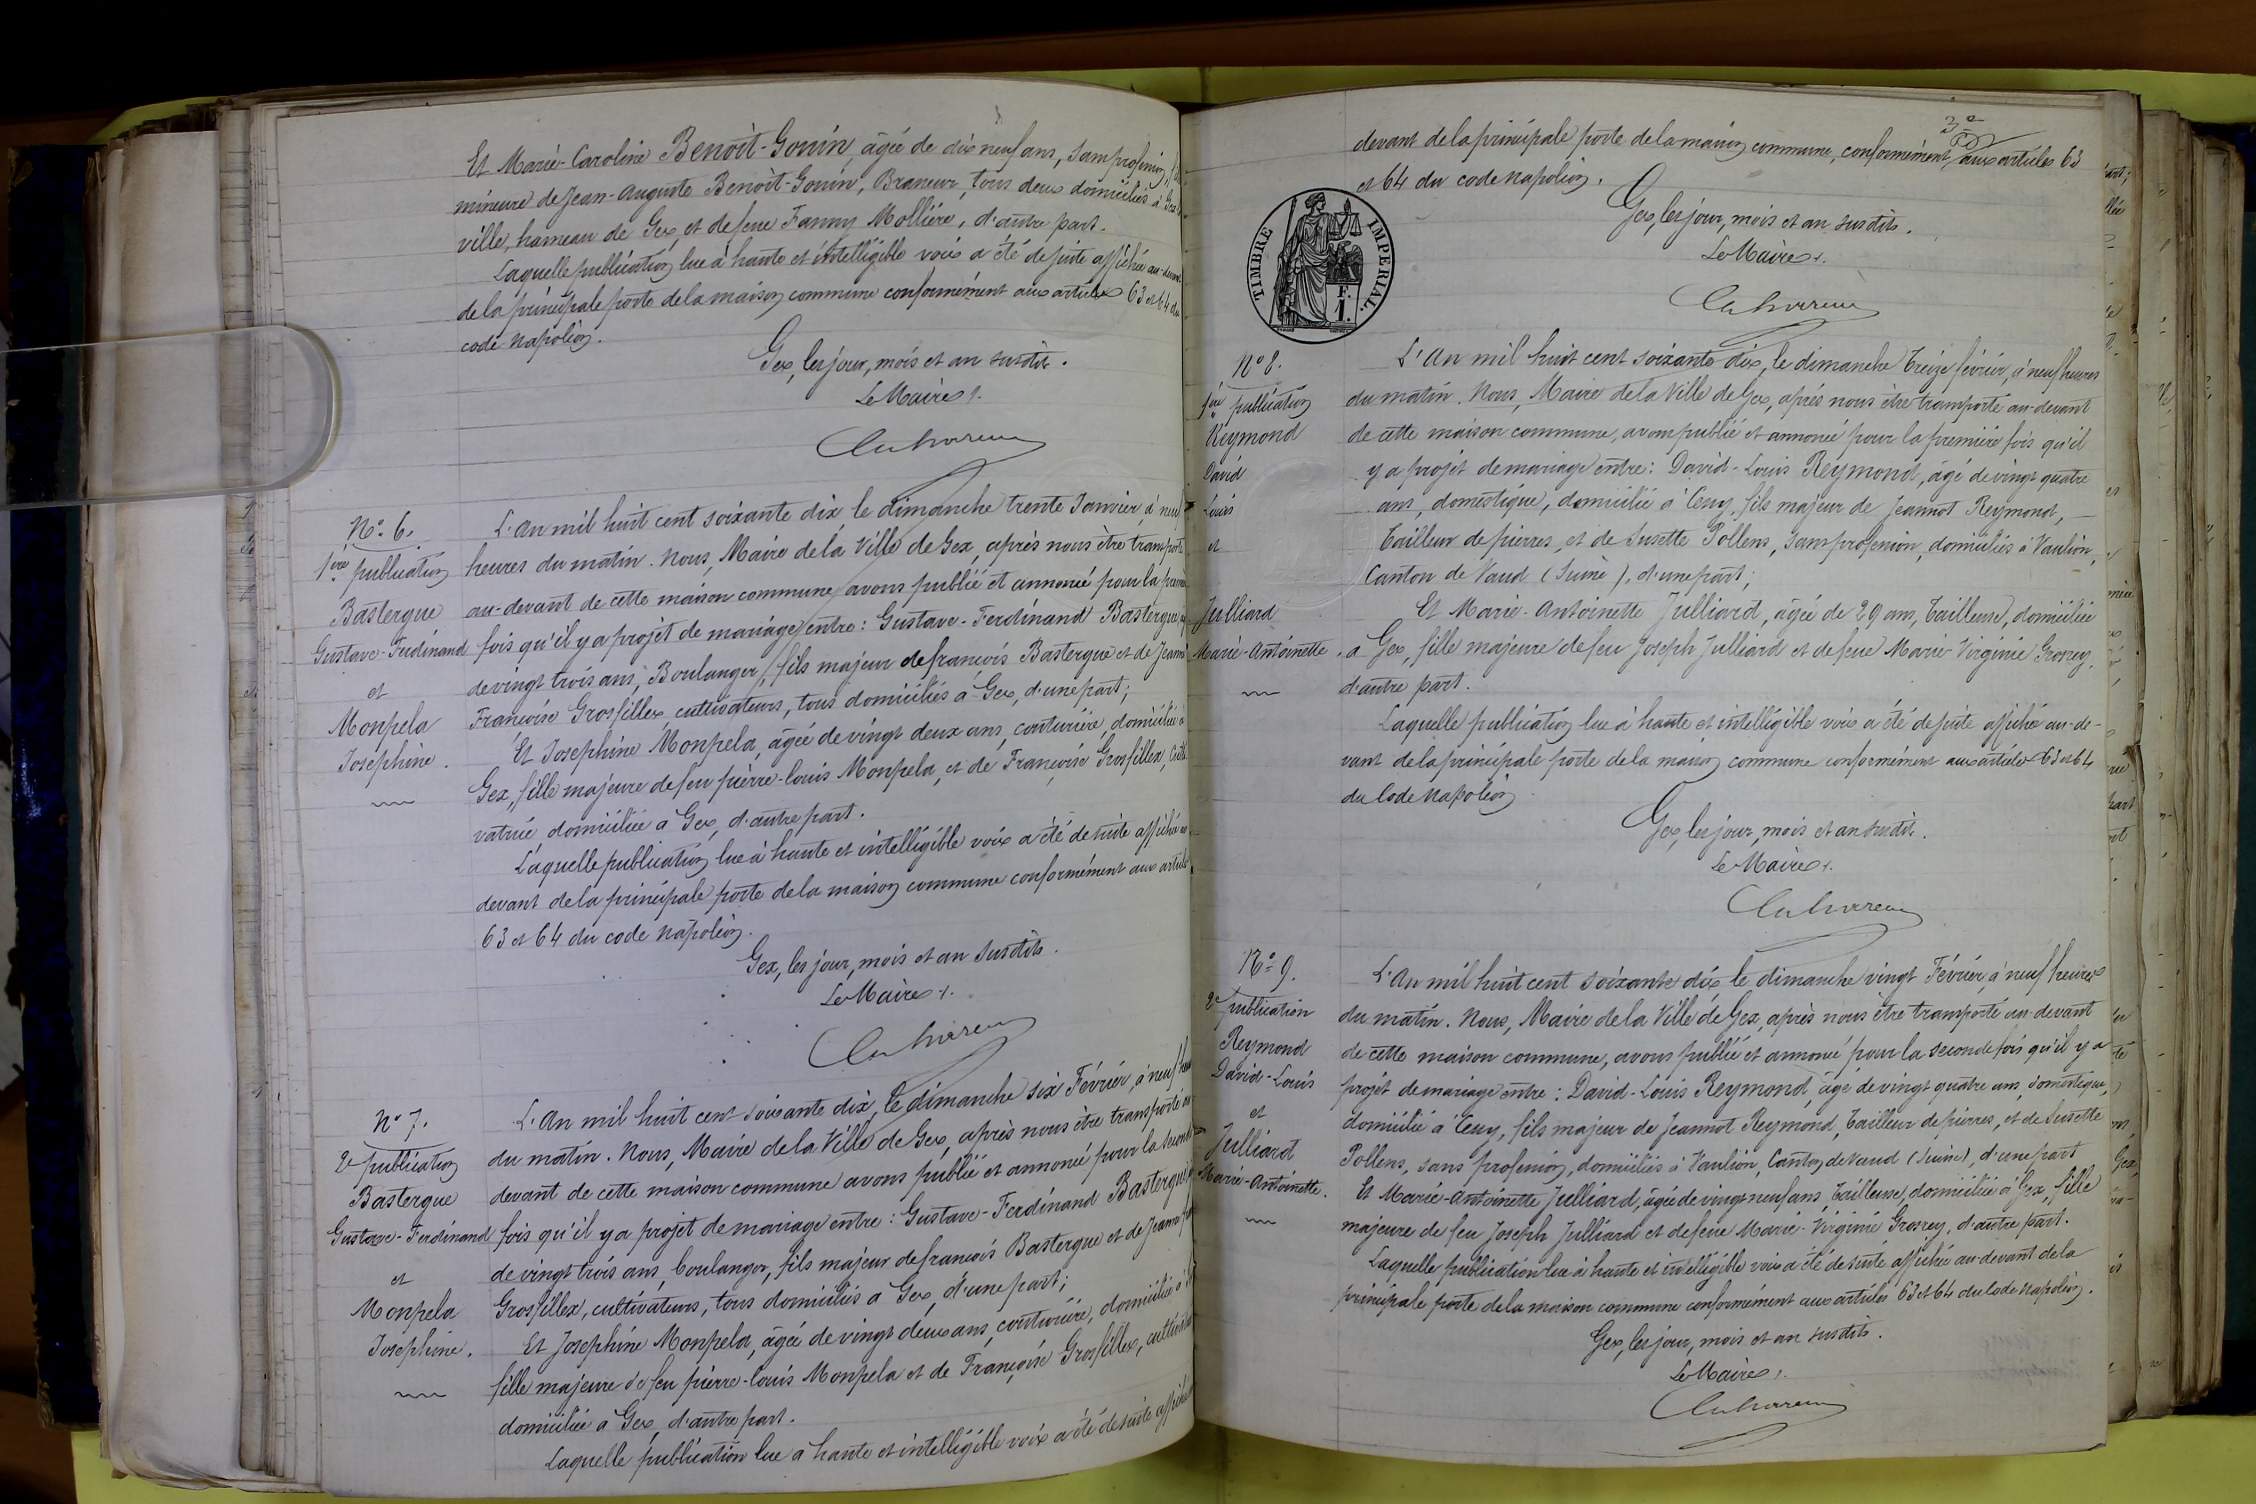 Et Marie-Caroline Benoît-Gonin, âgée de dix neuf ans, sans profession,
mineure de Jean-Auguste Benoît-Gonin, Braneur, tous deux domiciliés à Gex-
ville, hameau de Gex, et de feue Fanny Mollière, d'autre part.
Laquelle publication lue à haute et intelligible voix a été de suite affichée au-devant
de la principale porte de la maison commune conformément aux articles 63 et 64 du
code Napoléon.
Gex, les jour, mois et an susdits.
Le Maire.
N.º 6.
1ère publication
Bastergue
Gustave-Ferdinand
et
Monpela
Josephine.
L'an mil huit cent soixante dix, le dimanche trente Janvier, à neuf
heures du matin. Nous, Maire de la Ville de Gex, après nous être transporté
au-devant de cette maison commune, avons publié et annoncé pour la première
fois qu'il y a projet de mariage entre: Gustave-Ferdinand Bastergue, âgé
de vingt trois ans, Boulanger, fils majeur de francois Bastergue et de Jeanne
Françoise Grosfillex, cultivateurs, tous domiciliés à Gex, d'une part;
Et Josephine Monpela, âgée de vingt deux ans, couturière, domiciliée à
Gex, fille majeure de feu pierre-louis Monpela, et de Françoise Grosfillex, culti-
vatrice domiciliée a Gex, d'autre part.
Laquelle publication lue à haute et intelligible voix a été de suite affichée au-
devant de la principale porte de la maison commune conformément aux articles
63 et 64 du code Napoléon.
Gex, les jour, mois et an susdits.
Le Maire.
N.º 7.
2e publication
Bastergue
Gustave-Ferdinand
et
Monpela
Josephine.
L'An mil huit cent soixante dix, le dimanche six Février, à neuf heures
du matin. Nous, Maire de la Ville de Gex, après nous être transporté au
devant de cette maison commune avons publié et annoncé pour la seconde
fois qu'il y a projet de mariage entre: Gustave-Ferdinand Bastergue
de vingt trois ans, boulanger, fils majeur de francois Bastergue et de Jeanne
Grosfillex, cultivateurs, tous domiciliés a Gex, d'une part;
Et Josephine Monpela, âgée de vingt deux ans, couturière, domiciliée à
fille majeure de feu pierre-louis Monpela et de Françoise Grosfillex,
domiciliée à Gex, d'autre part.
Laquelle publication lue a haute et intelligible voix a été de suite affichée
3e
devant de la principale porte de la maison commune, conformément aux articles 63
et 64 du code napoléon.
Gex, les jour, mois et an susdits.
Le Maire.
TIMBRE IMPERIAL.
F. 1.
N.º 8.
1ère publication
Reymond
David
Louis
et
Julliard
Marie-Antoinette.
L'An mil huit cent soixante dix, le dimanche treize février, à neuf heures
du matin. Nous, Maire de la Ville de Gex, après nous être transporté au-devant
de cette maison commune, avons publié et annoncé pour la première fois qu'il
y a projet de mariage entre: David-Louis Reymond, âgé de vingt quatre
ans, domestique, domicilié à Cessy, fils majeur de Jeannot Reymond,
Tailleur de pierres, et de Susette Pollens, sans profession, domiciliés à Vaulion,
Canton de Vaud (Suisse), d'une part;
Et Marie-Antoinette Julliard, âgée de 29 ans, Tailleuse, domiciliée
a Gex, fille majeure de feu Joseph Julliard et de feue Marie Virginie Grosrey,
d'autre part.
Laquelle publication lue à haute et intelligible voix a été de suite affichée au-de-
vant de la principale porte de la maison commune conformément aux articles 63 et 64
du Code Napoléon.
Gex, les jour, mois et an susdits.
Le Maire.
N.º 9.
2e publication
Reymond
David-Louis
et
Julliard
Marie-Antoinette.
L'An mil huit cent soixante dix le dimanche vingt Février, à neuf heures
du matin. Nous, Maire de la Ville de Gex, après nous être transporté au-devant
de cette maison commune, avons publié et annoncé pour la seconde fois qu'il y a
projet de mariage entre: David-Louis Reymond, âgé de vingt quatre ans, domestique,
domicilié à Cessy, fils majeur de Jeannot Reymond, Tailleur de pierres, et de Susette
Pollens, sans profession, domiciliés à Vaulion, Canton de Vaud (Suisse), d'une part
Et Marie-Antoinette Julliard, âgée de vingt neuf ans, Tailleuse, domiciliée à Gex, fille
majeure de feu Joseph Julliard et de feue Marie-Virginie Grosrey, d'autre part.
Laquelle publication lue à haute et intelligible voix a été de suite affichée au-devant de la
principale porte de la maison commune conformément aux articles 63 et 64 du Code Napoléon.
Gex, les jour, mois et an susdits.
Le Maire.